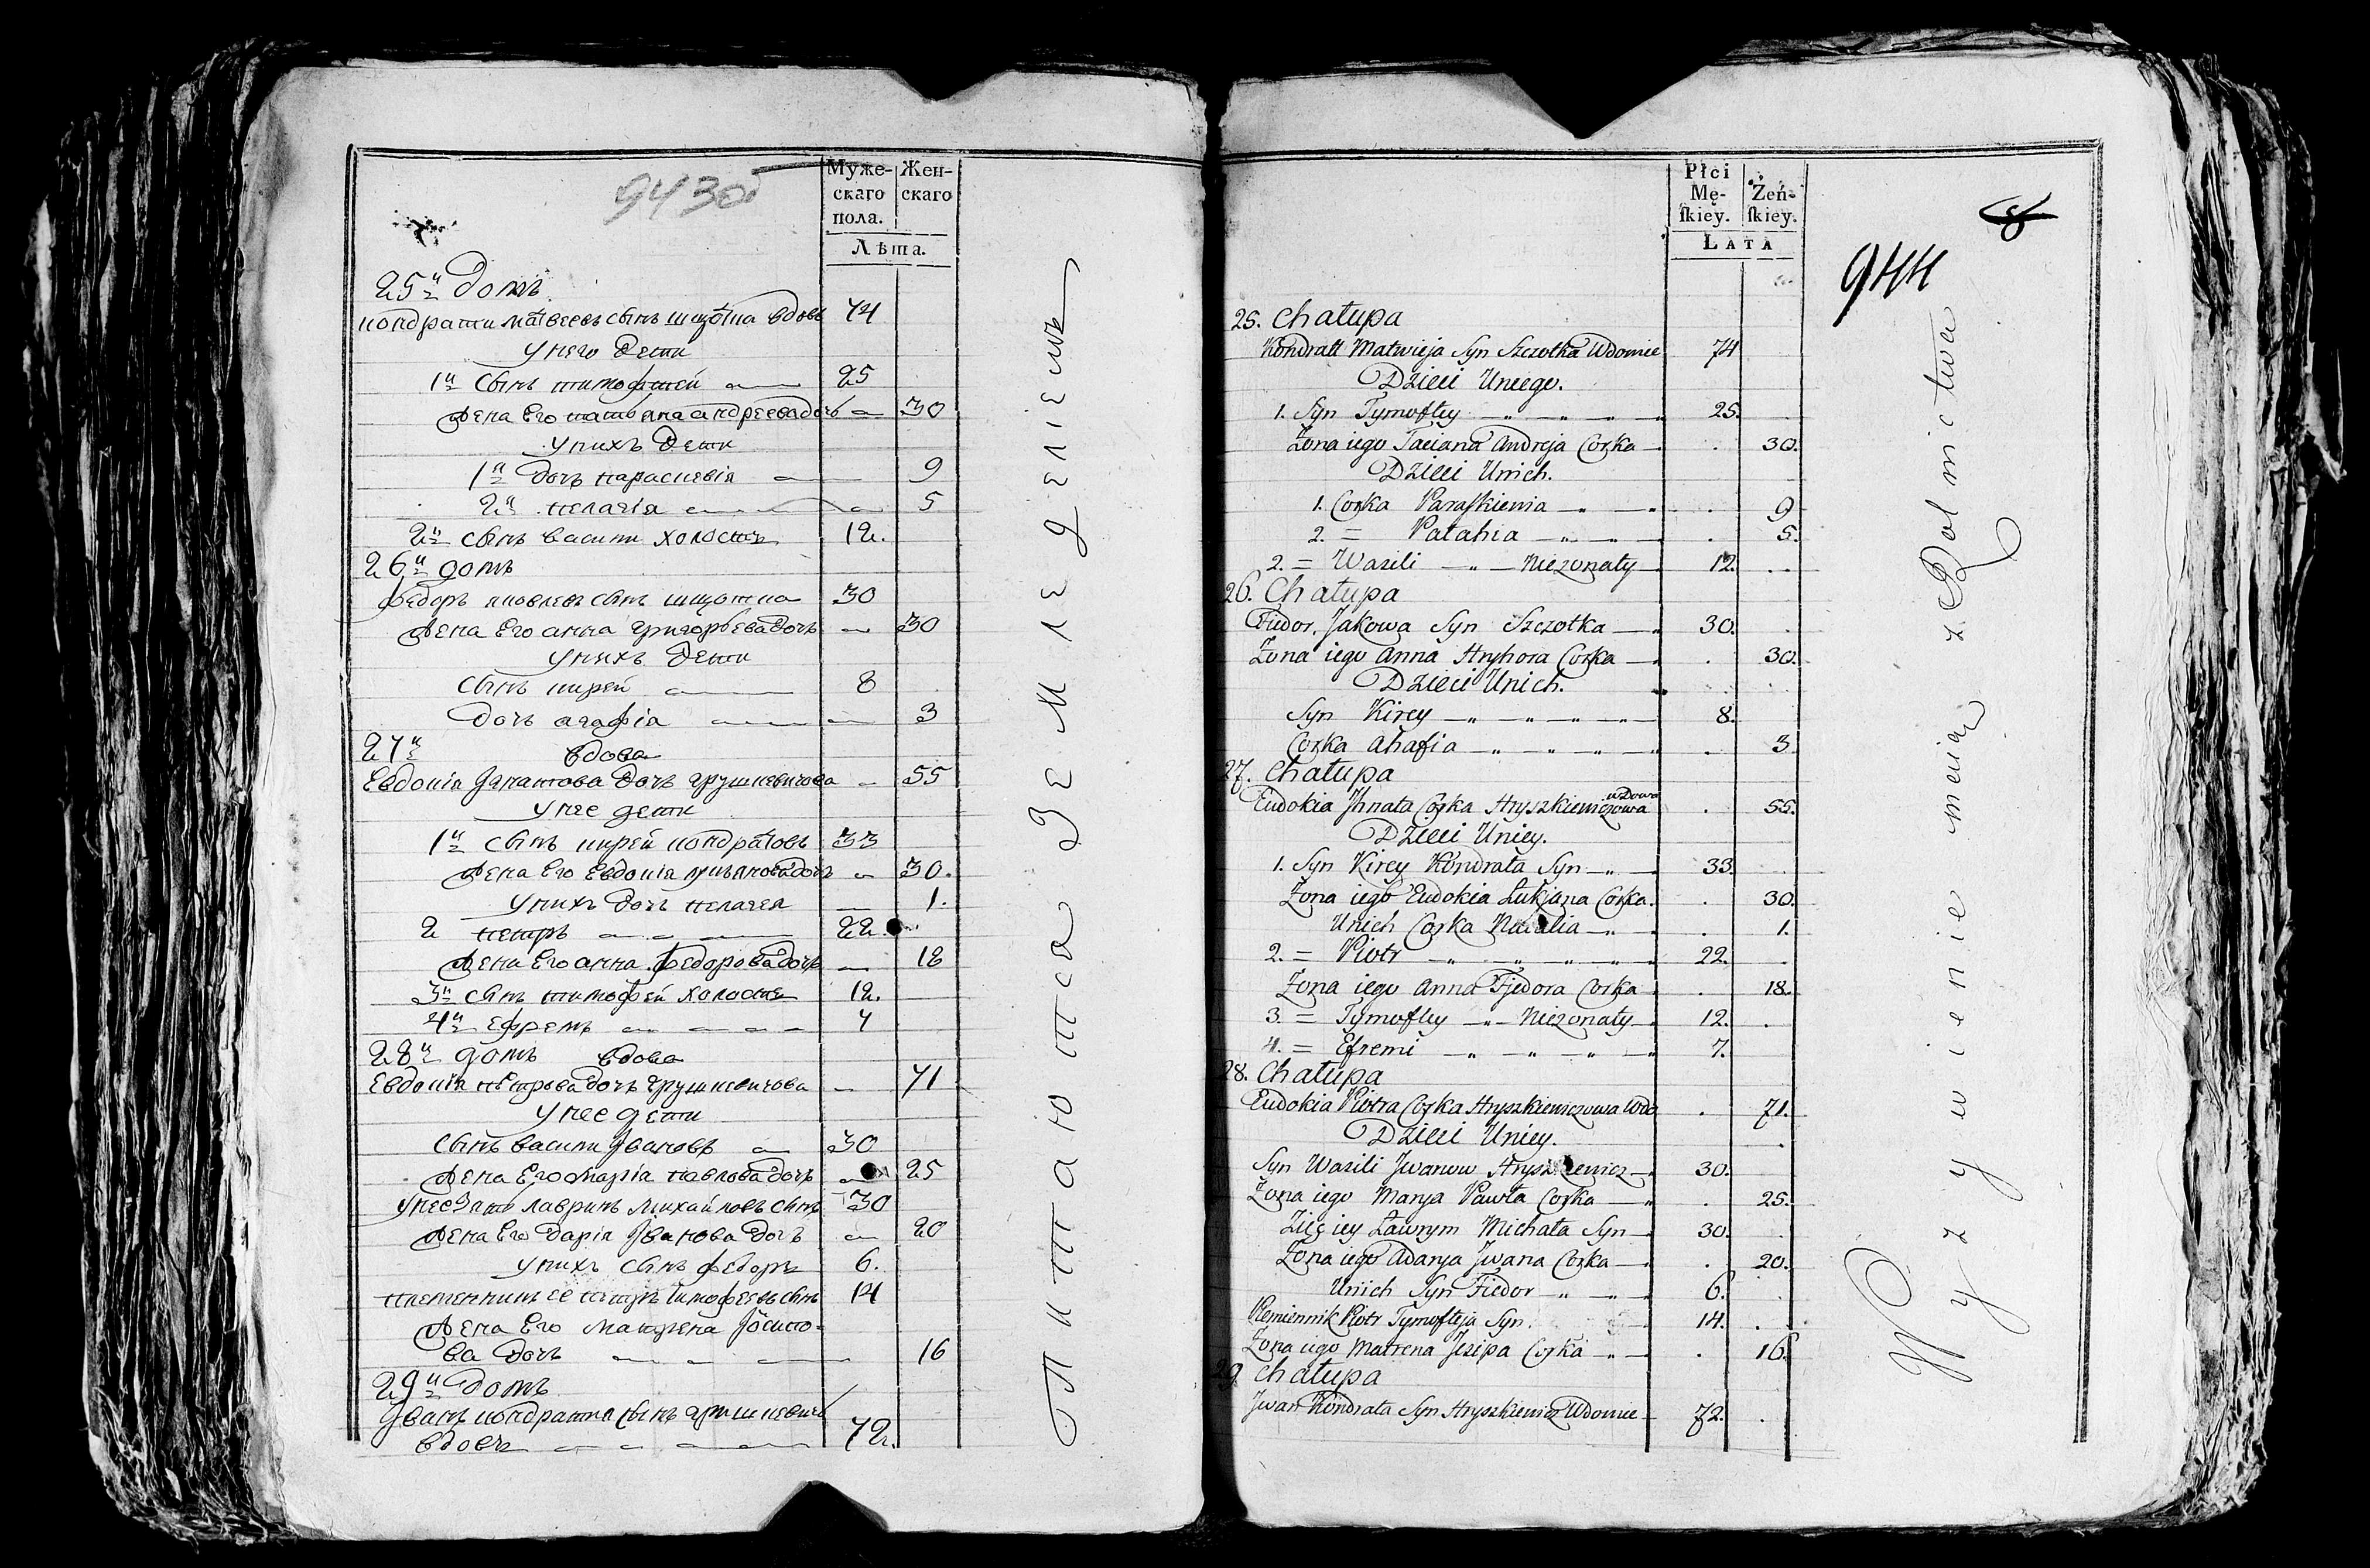 943об
Муже-
скаго
пола.
Жен-
скаго
Лѣта.
25й домъ
кондрати матвеевъ сынъ щщотка вдовъ 74
у него дети
1й сынъ тимофтей 25
жена Его татьяна андреева дочъ 30
у нихъ дети
1я дочъ параскевія 9
2я пелагія 5
2й сынъ васили холостъ 12.
26й домъ
федоръ яковлевъ сынъ щщотка 30
жена Его анна григорьева дочъ 30
у нихъ дети
сынъ кирей 8
дочъ агафія 3
27й вдова
Евдокія Игнатова дочъ грушкевичова 55
у нее дети
1й сынъ кирей кондратовъ 33
жена Его Евдокія лукьянова дочъ 30.
у нихъ дочъ пелагея 1.
2 петръ 22.
жена Его анна федорова дочъ 18
3й сынъ тимофей холостъ 12.
4й Ефремъ 7
28й домъ вдова
Евдокія петрова дочъ грушкевичова 71
у нее дети
сынъ васили Ивановъ 30
жена Его марія павлова дочъ 25
у нее зять лавринъ михайловъ сынъ 30
жена Его дарія Иванова дочъ 20
у нихъ сынъ федоръ 6.
племенникъ ее петръ тимофеевъ сынъ 14
жена Его матрена Іосипо-
ва дочъ 16
29й домъ
Иванъ кондратиа сынъ грушкевичъ
вдовъ 72.
Питаются Земледеліемъ
Płci
Mę-
ſkiey.
Żeń-
ſkiey.
LATA
944
25. Chałupa
Kondratt Matwieja Syn Szczotka Wdowiec 74
Dzieci Uniego.
1. Syn Tymoftey 25.
Żona iego Taciana Andreja Corka 30.
Dzieci Unich.
1. Corka Paraſkiewia 9
2. = Pałahia 5.
2. = Wasili Nieżonaty 12.
26. Chałupa
Fiudor, Jakowa Syn Szczotka 30.
Żona iego Anna Hryhora Corka 30.
Dzieci Unich.
Syn Kirey 8.
Corka Ahafia 3
27. Chałupa
Eudokia Jhnata Corka Hryszkiewiczowa wdowa 55.
Dzieci Uniey.
1. Syn Kirey Kondrata Syn 33.
Żona iego Eudokia Łukjana Corka. 30.
Unich Corka 1.
2. = Piotr 22.
Żona iego Anna Fjedora Corka 18.
3. = Tymofiey Nieżonaty 12.
4. = Efremi 7.
28. Chałupa
Eudokia Piotra Corka Hryszkiewiczowa Wdo 71.
Dzieci Uniey.
Syn Wasili Jwanow Hryszkiewicz 30.
Żona iego Marya Pawła Corka 25.
Zięć iey Ławrym Michała Syn 30.
Żona iego Adarya Jwana Corka 20.
Unich Syn Fiedor 6.
Plemiennik Piotr Tymofteja Syn. 14.
Żona iego Matrena Jesipa Corka 16.
29. Chałupa
Jwan Kondrata Syn Hryszkiewicz Wdowiec 72.
Wyżywienie maią z Rolnictwa